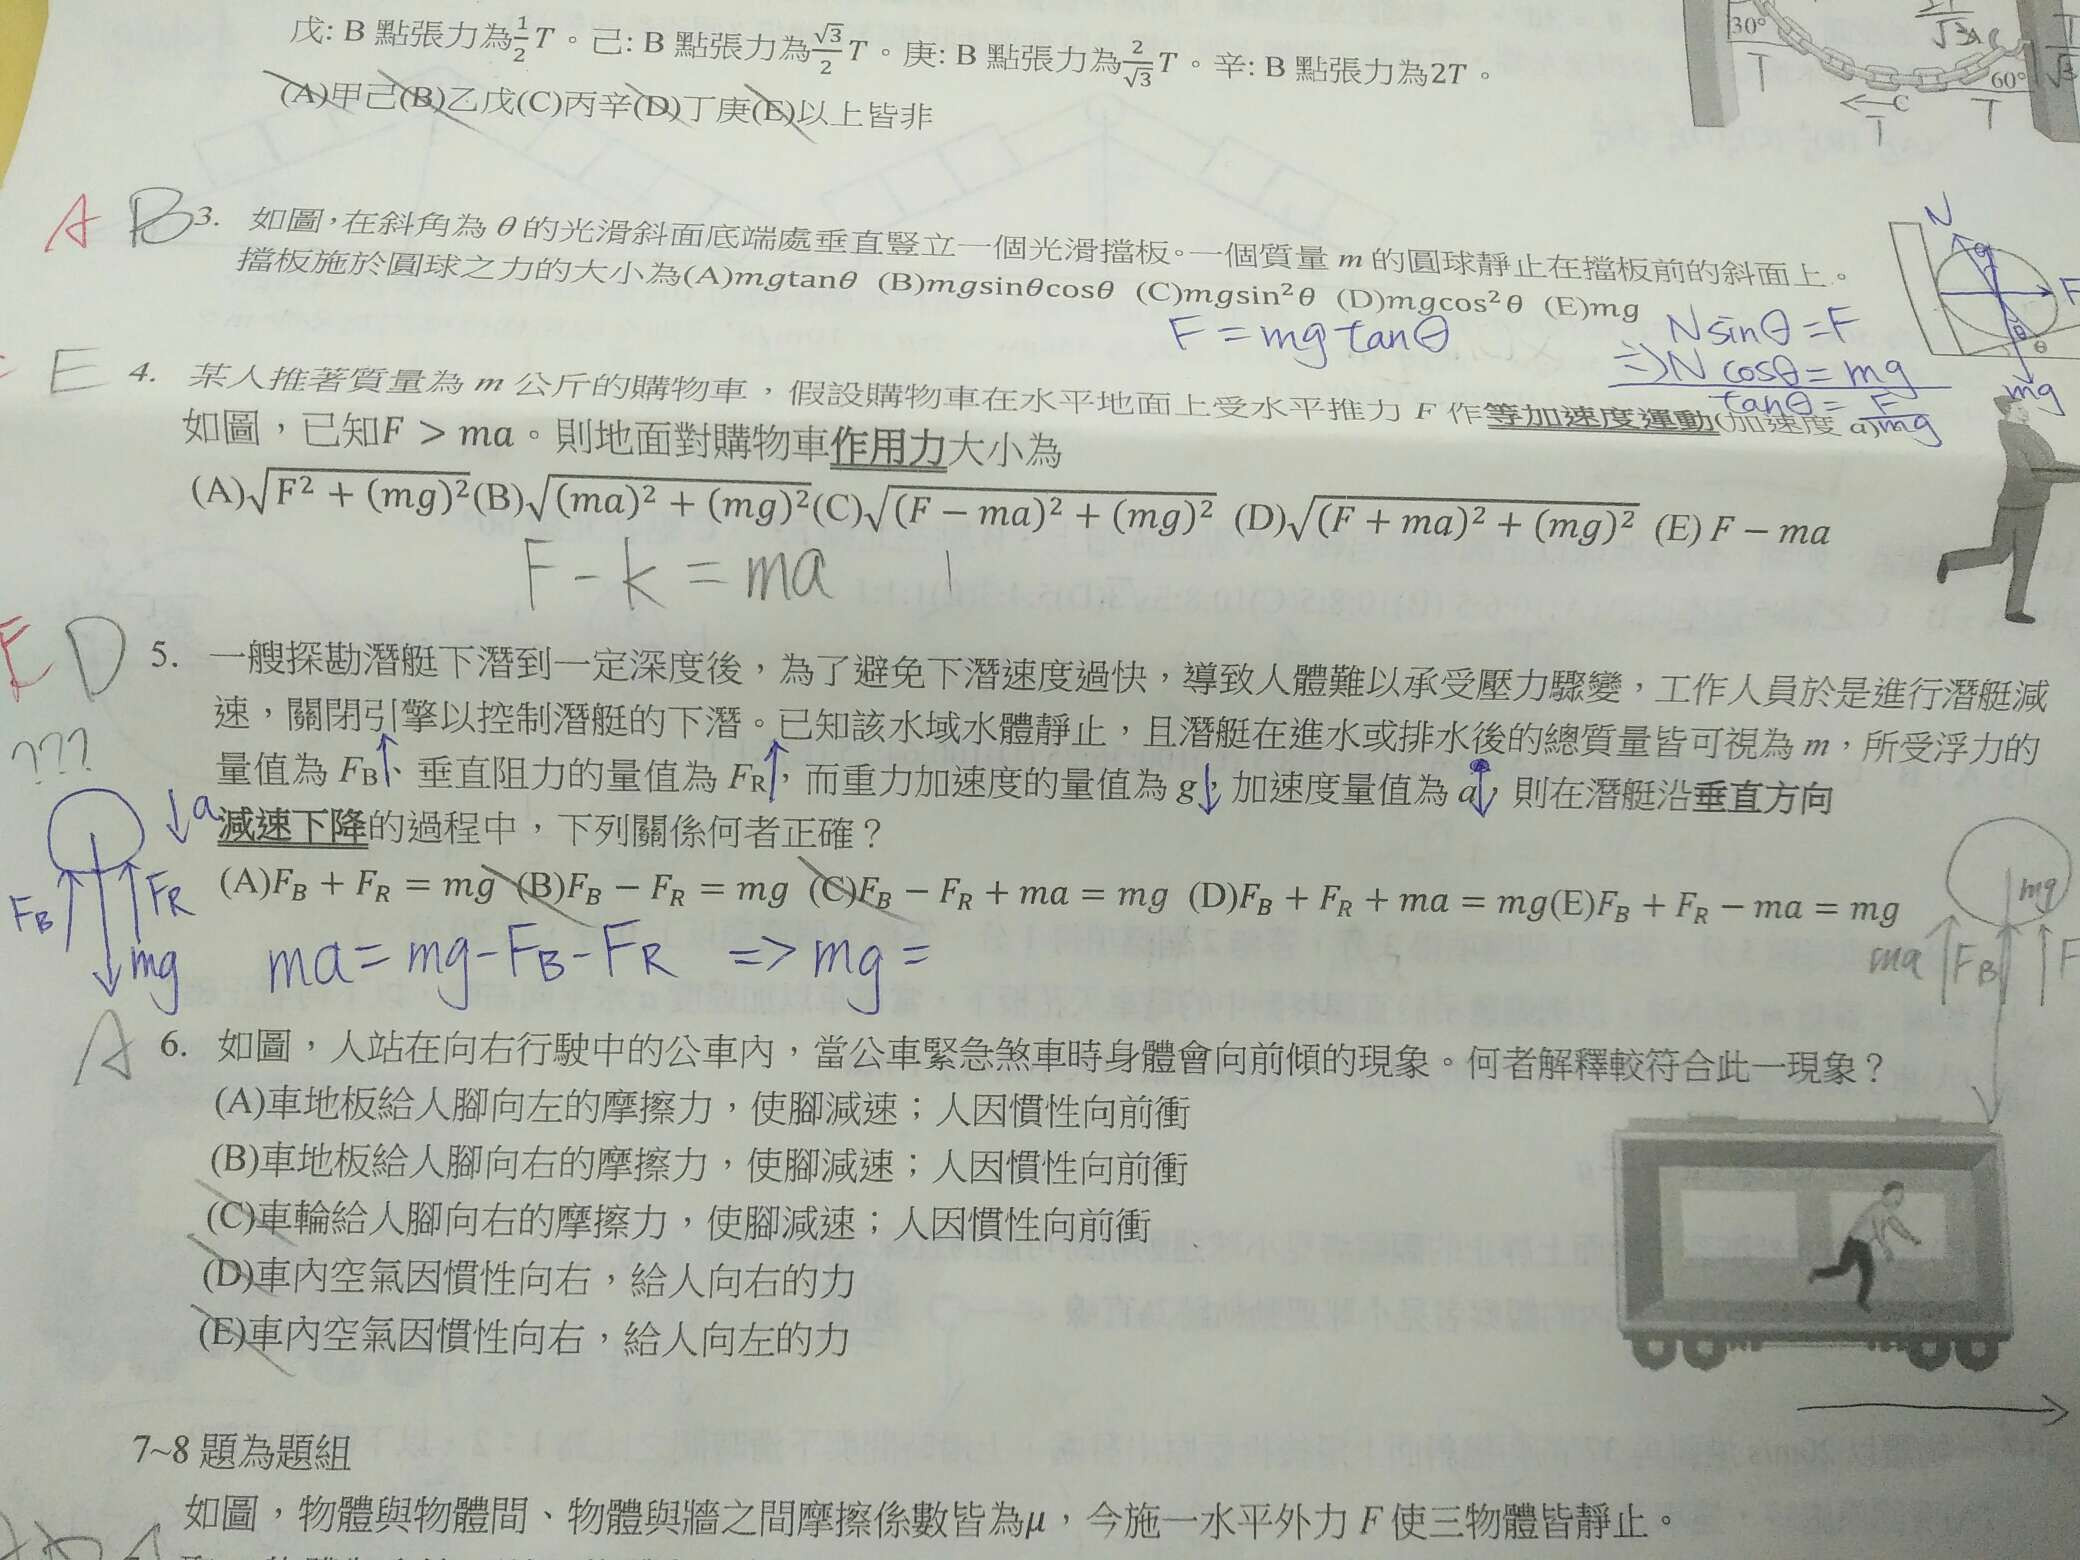 戊: B 點張力為\frac{1}{2}T。己: B 點張力為\frac{\sqrt{3}}{2}T。庚: B 點張力為\frac{2}{\sqrt{3}}T。辛: B 點張力為2T。
(A)甲己(B)乙戊(C)丙辛(D)丁庚(E)以上皆非
30°
60°
C
T
T
T
A B 3. 如圖，在斜角為 θ 的光滑斜面底端處垂直豎立一個光滑擋板。一個質量 m 的圓球靜止在擋板前的斜面上。
擋板施於圓球之力的大小為(A)mgtanθ (B)mgsinθcosθ (C)mgsin²θ (D)mgcos²θ (E)mg
F = mg tanθ
N sinθ = F
÷) N cosθ = mg
tanθ = \frac{F}{mg}
N
θ
F
θ
θ
mg
E 4. 某人推著質量為 m 公斤的購物車，假設購物車在水平地面上受水平推力 F 作等加速度運動(加速度 a)
如圖，已知F > ma。則地面對購物車作用力大小為
(A)√(F² + (mg)²)(B)√((ma)² + (mg)²)(C)√((F − ma)² + (mg)²) (D)√((F + ma)² + (mg)²) (E) F − ma
F - k = ma
E D 5. 一艘探勘潛艇下潛到一定深度後，為了避免下潛速度過快，導致人體難以承受壓力驟變，工作人員於是進行潛艇減
速，關閉引擎以控制潛艇的下潛。已知該水域水體靜止，且潛艇在進水或排水後的總質量皆可視為 m，所受浮力的
???
量值為 F_B、垂直阻力的量值為 F_R，而重力加速度的量值為 g，加速度量值為 a，則在潛艇沿垂直方向
減速下降的過程中，下列關係何者正確？
(A)F_B + F_R = mg (B)F_B − F_R = mg (C)F_B − F_R + ma = mg (D)F_B + F_R + ma = mg(E)F_B + F_R − ma = mg
a
F_B
F_R
mg
ma = mg - F_B - F_R => mg =
mg
ma
F_B
F
A 6. 如圖，人站在向右行駛中的公車內，當公車緊急煞車時身體會向前傾的現象。何者解釋較符合此一現象？
(A)車地板給人腳向左的摩擦力，使腳減速；人因慣性向前衝
(B)車地板給人腳向右的摩擦力，使腳減速；人因慣性向前衝
(C)車輪給人腳向右的摩擦力，使腳減速；人因慣性向前衝
(D)車內空氣因慣性向右，給人向右的力
(E)車內空氣因慣性向右，給人向左的力
7~8 題為題組
如圖，物體與物體間、物體與牆之間摩擦係數皆為μ，今施一水平外力 F 使三物體皆靜止。